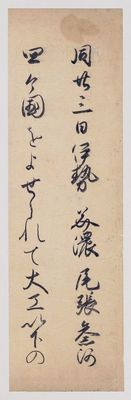 同廿三日伊勢 美濃 尾張 参河
四ケ國をよせられて大工以下の